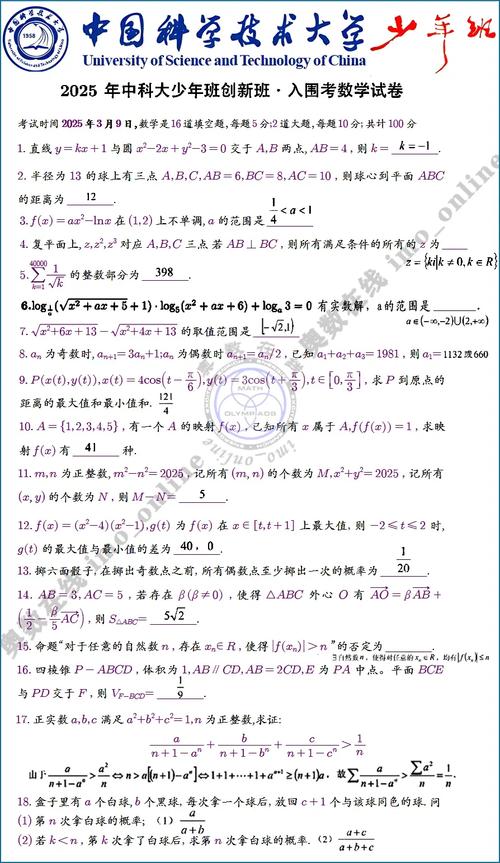 1958
中国科学技术大学 少年班
University of Science and Technology of China
2025 年中科大少年班创新班·入围考数学试卷
考试时间 2025年3月9日,数学是16道填空题,每题5分;2道大题,每题10分;共计100分
1. 直线 y=kx+1 与圆 x²-2x+y²-3=0 交于 A,B 两点, AB=4, 则 k= k=-1.
2. 半径为 13 的球上有三点 A,B,C,AB=6,BC=8,AC=10, 则球心到平面 ABC
的距离为 12 .
3. f(x)=ax²-lnx 在 (1,2) 上不单调, a 的范围是 1/4<a<1
4. 复平面上, z,z²,z³ 对应 A,B,C 三点若 AB⊥BC, 则所有满足条件的所有的 z 为
z={ki|k≠0,k∈R}
5. ∑_{k=1}^{40000} 1/√k 的整数部分为 398 .
6.log_{1/a}(√(x²+ax+5)+1)·log₅(x²+ax+6)+log_a 3=0 有实数解, a的范围是 .
a∈(-∞,-2)∪(2,+∞)
7. √(x²+6x+13)-√(x²+4x+13) 的取值范围是 [-√2,1)
8. aₙ 为奇数时, aₙ₊₁=3aₙ+1; aₙ 为偶数时 aₙ₊₁=aₙ/2, 已知 a₁+a₂+a₃=1981, 则 a₁=1132或660
9. P(x(t),y(t)),x(t)=4cos(t-π/6),y(t)=3cos(t+π/3),t∈[0,π/3], 求 P 到原点的
距离的最大值和最小值和. 121/4
10. A={1,2,3,4,5}, 有一个 A 的映射 f(x), 已知所有 x 属于 A,f(f(x))=1, 求映
射 f(x) 有 41 种.
11. m,n 为正整数, m²-n²=2025, 记所有 (m,n) 的个数为 M,x²+y²=2025, 记所有
(x,y) 的个数为 N, 则 M-N= 5 .
12. f(x)=(x²-4)(x²-1),g(t) 为 f(x) 在 x∈[t,t+1] 上最大值, 则 -2≤t≤2 时,
g(t) 的最大值与最小值的差为 40，0 .
13. 掷六面骰子, 在掷出奇数点之前, 所有偶数点至少掷出一次的概率为 1/20 .
14. AB=3,AC=5, 若存在 β(β≠0), 使得 △ABC 外心 O 有 AO=βAB+
(1/2-β/5 AC), 则 S△ABC= 5√2 .
15. 命题“对于任意的自然数 n, 存在 xₙ∈R, 使得 |f(xₙ)|>n”的否定为 .
∃自然数n，使得对任意的xₙ∈R，均有|f(xₙ)|≤n
16. 四棱锥 P-ABCD, 体积为 1,AB∥CD,AB=2CD,E 为 PA 中点。平面 BCE
与 PD 交于 F, 则 V_{F-BCD}= 1/9 .
17. 正实数 a,b,c 满足 a²+b²+c²=1,n 为正整数, 求证:
a/(n+1-aⁿ)+b/(n+1-bⁿ)+c/(n+1-cⁿ)>1/n
由于 a/(n+1-aⁿ)>a²/n⇔n>a[(n+1)-aⁿ]⇔1+1+⋯+1+aⁿ⁺¹≥(n+1)a，故∑a/(n+1-aⁿ)>∑a²/n=1/n.
18. 盒子里有 a 个白球, b 个黑球. 每次拿一个球后, 放回 c+1 个与该球同色的球. 问
(1) 第 n 次拿白球的概率; （1）a/(a+b)
(2) 若 k<n, 第 k 次拿了白球后, 求第 n 次拿白球的概率. （2）(a+c)/(a+b+c)
奥数在线 imo_online
奥数在线 imo_online
MATH
OLYMPIADS